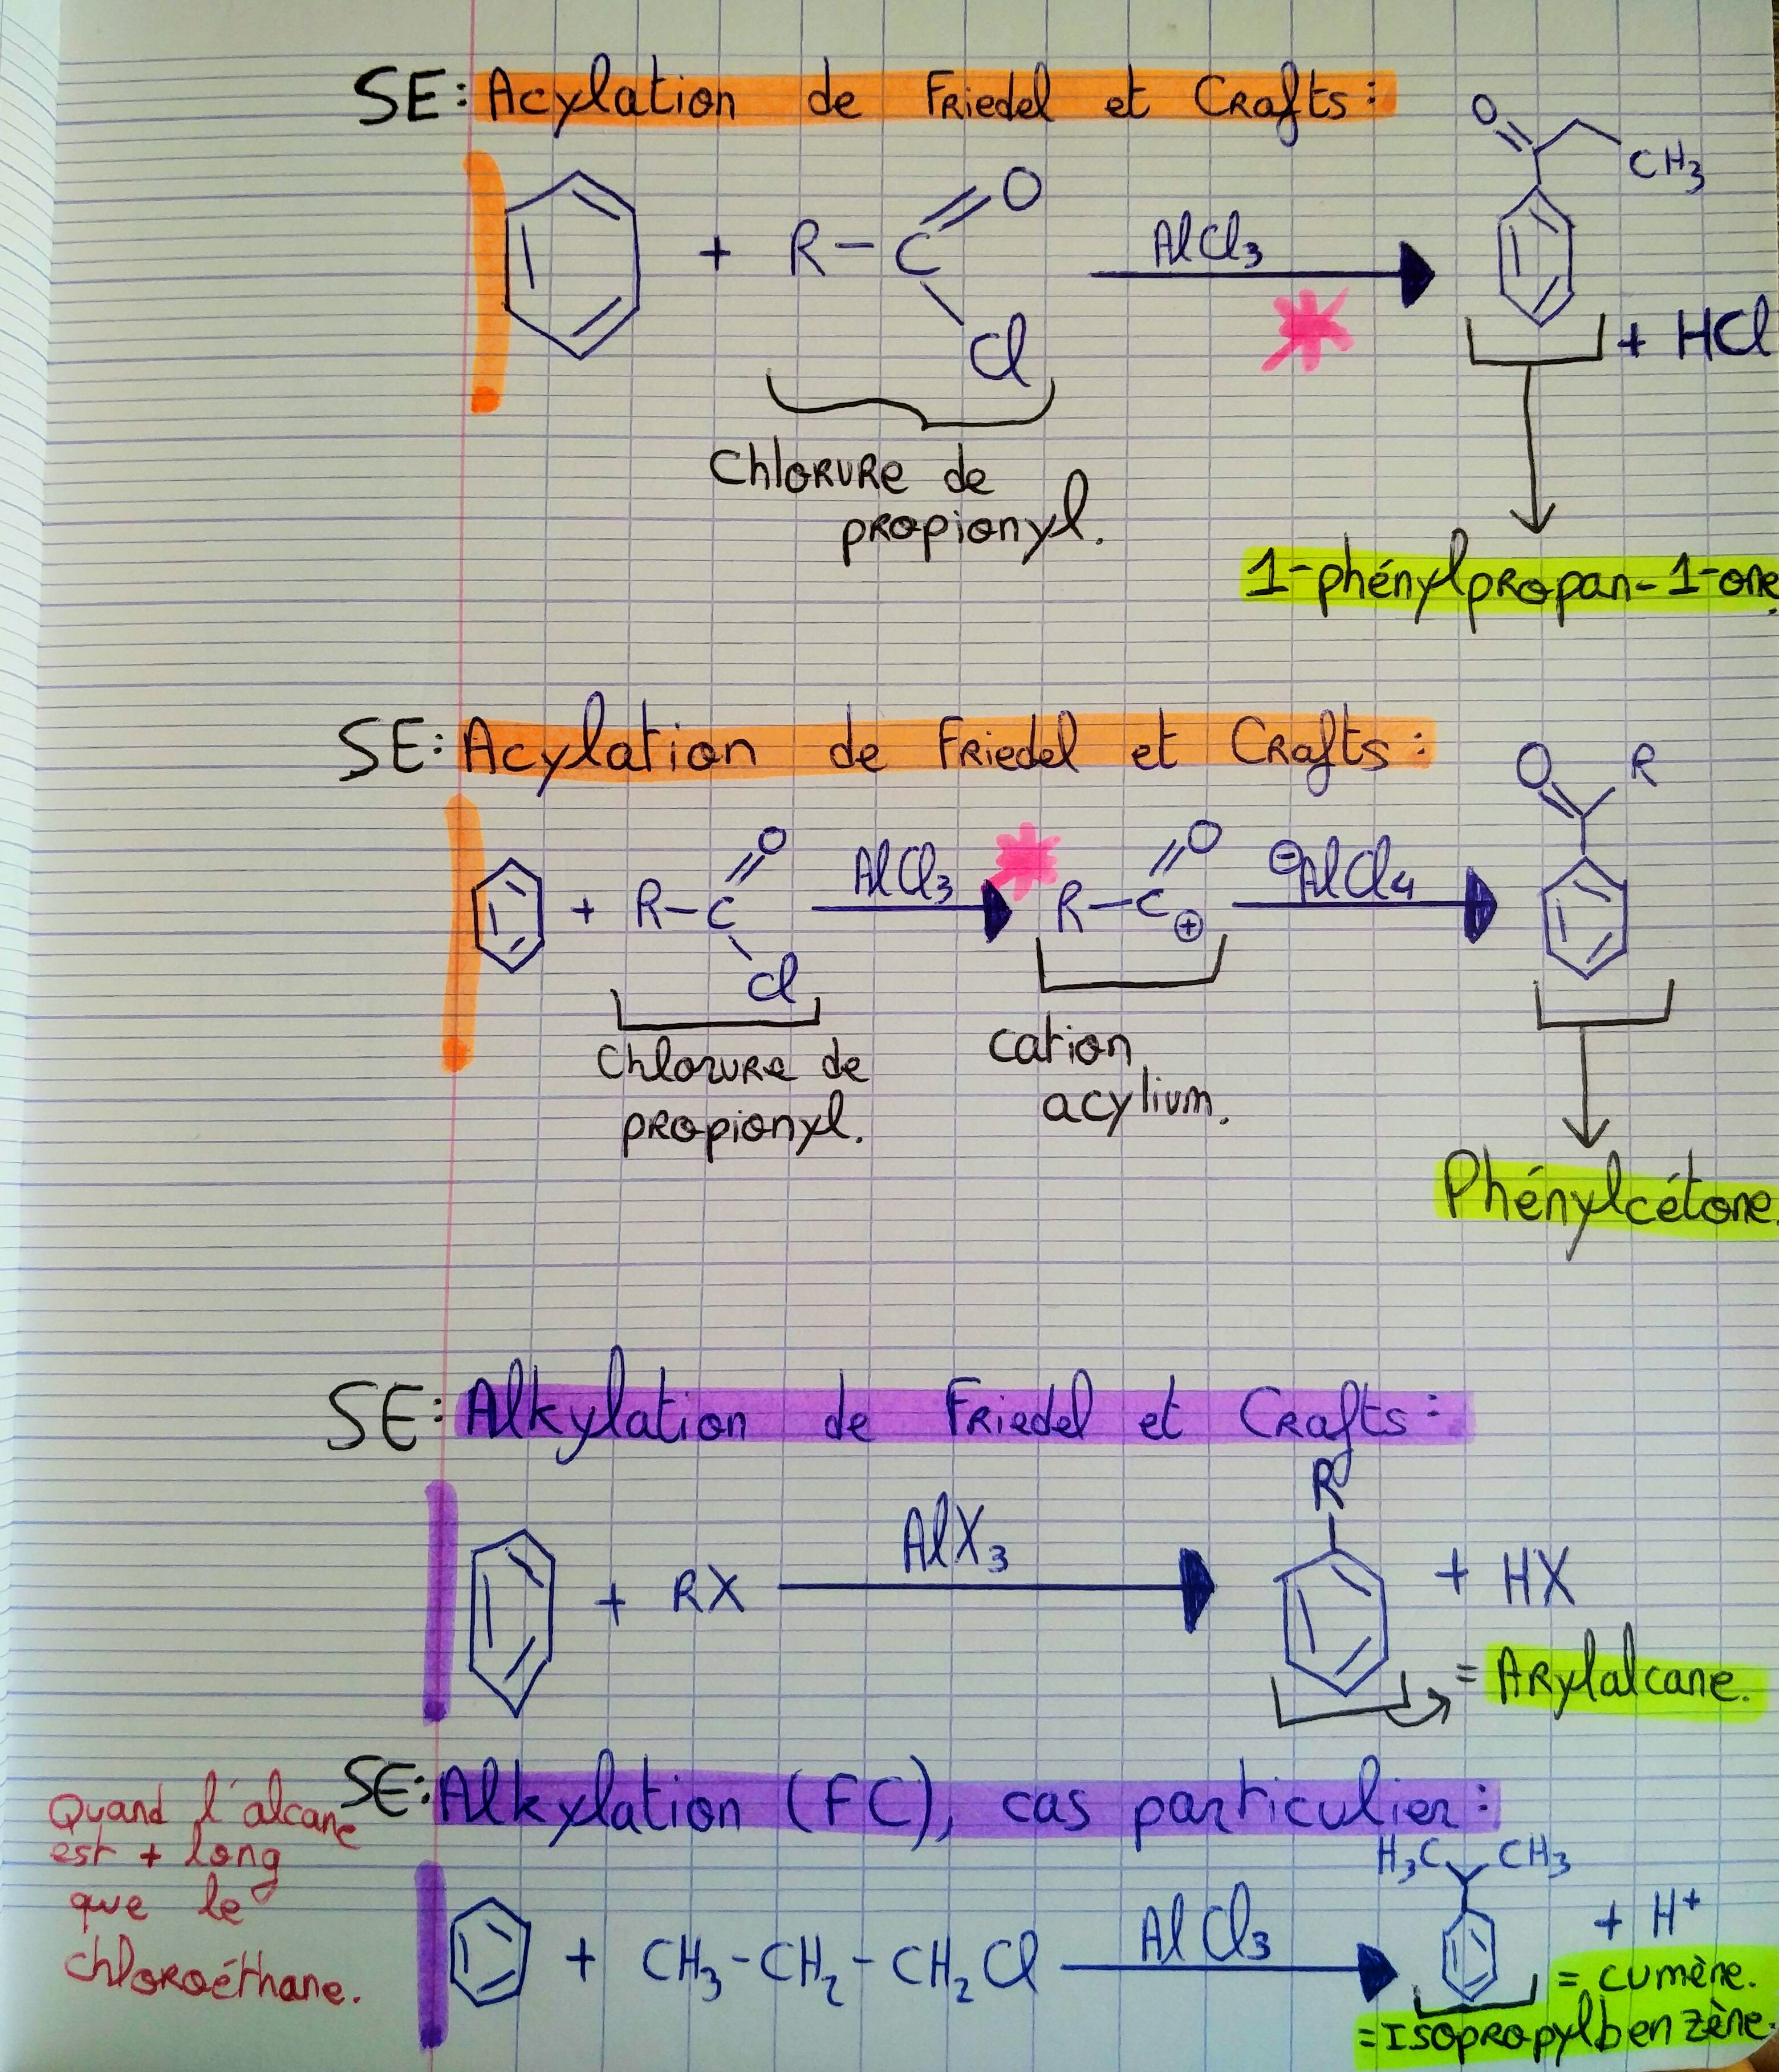 SE: Acylation de Friedel et Crafts:
O
CH3
R-C
O
Cl
+
AlCl3
+ HCl
Chlorure de
propionyl.
1-phénylpropan-1-one.
SE: Acylation de Friedel et Crafts:
O R
+ R-C
O
Cl
AlCl3
R-C⊕
O
⊖AlCl4
Chlorure de
propionyl.
cation
acylium.
Phénylcétone.
SE: Alkylation de Friedel et Crafts:
R
+ RX
AlX3
+ HX
= Arylalcane.
SE: Alkylation (FC), cas particulier:
Quand l'alcane
est + long
que le
chloroéthane.
H3C CH3
+ CH3-CH2-CH2Cl
AlCl3
+ H+
= cumène.
= Isopropylbenzène.